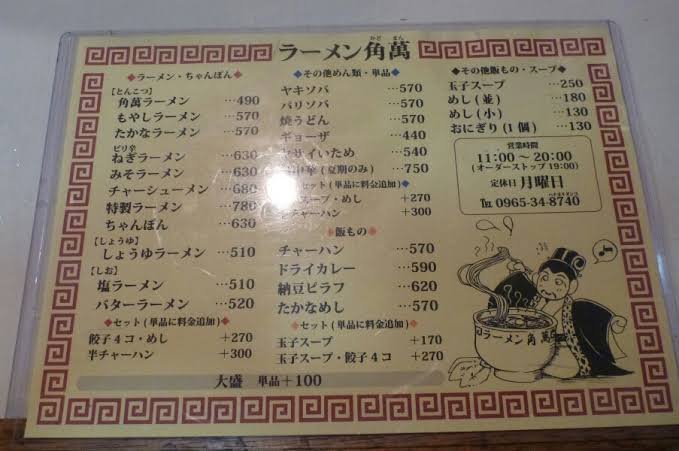 かど まん
ラーメン角萬
◆ラーメン・ちゃんぽん◆
【とんこつ】
角萬ラーメン …490
もやしラーメン …570
たかなラーメン …570
ピリ辛
ねぎラーメン …630
みそラーメン …630
チャーシューメン …680
特製ラーメン …780
ちゃんぽん …630
【しょうゆ】
しょうゆラーメン …510
【しお】
塩ラーメン …510
バターラーメン …520
◆セット(単品に料金追加)◆
餃子4コ・めし +270
半チャーハン +300
◆その他めん類・単品◆
ヤキソバ …570
パリソバ …570
焼うどん …570
ギョーザ …440
サイいため …540
華(夏期のみ) …750
セット(単品に料金追加)◆
スープ・めし +270
チャーハン +300
◆飯もの◆
チャーハン …570
ドライカレー …590
納豆ピラフ …620
たかなめし …570
◆セット(単品に料金追加)◆
玉子スープ +170
玉子スープ・餃子4コ +270
◆その他飯もの・スープ◆
玉子スープ …250
めし(並) …180
めし(小) …130
おにぎり(1個) …130
営業時間
11:00～20:00
(オーダーストップ19:00)
定休日 月曜日
℡ 0965-34-8740
ラーメン角萬
大盛 単品+100